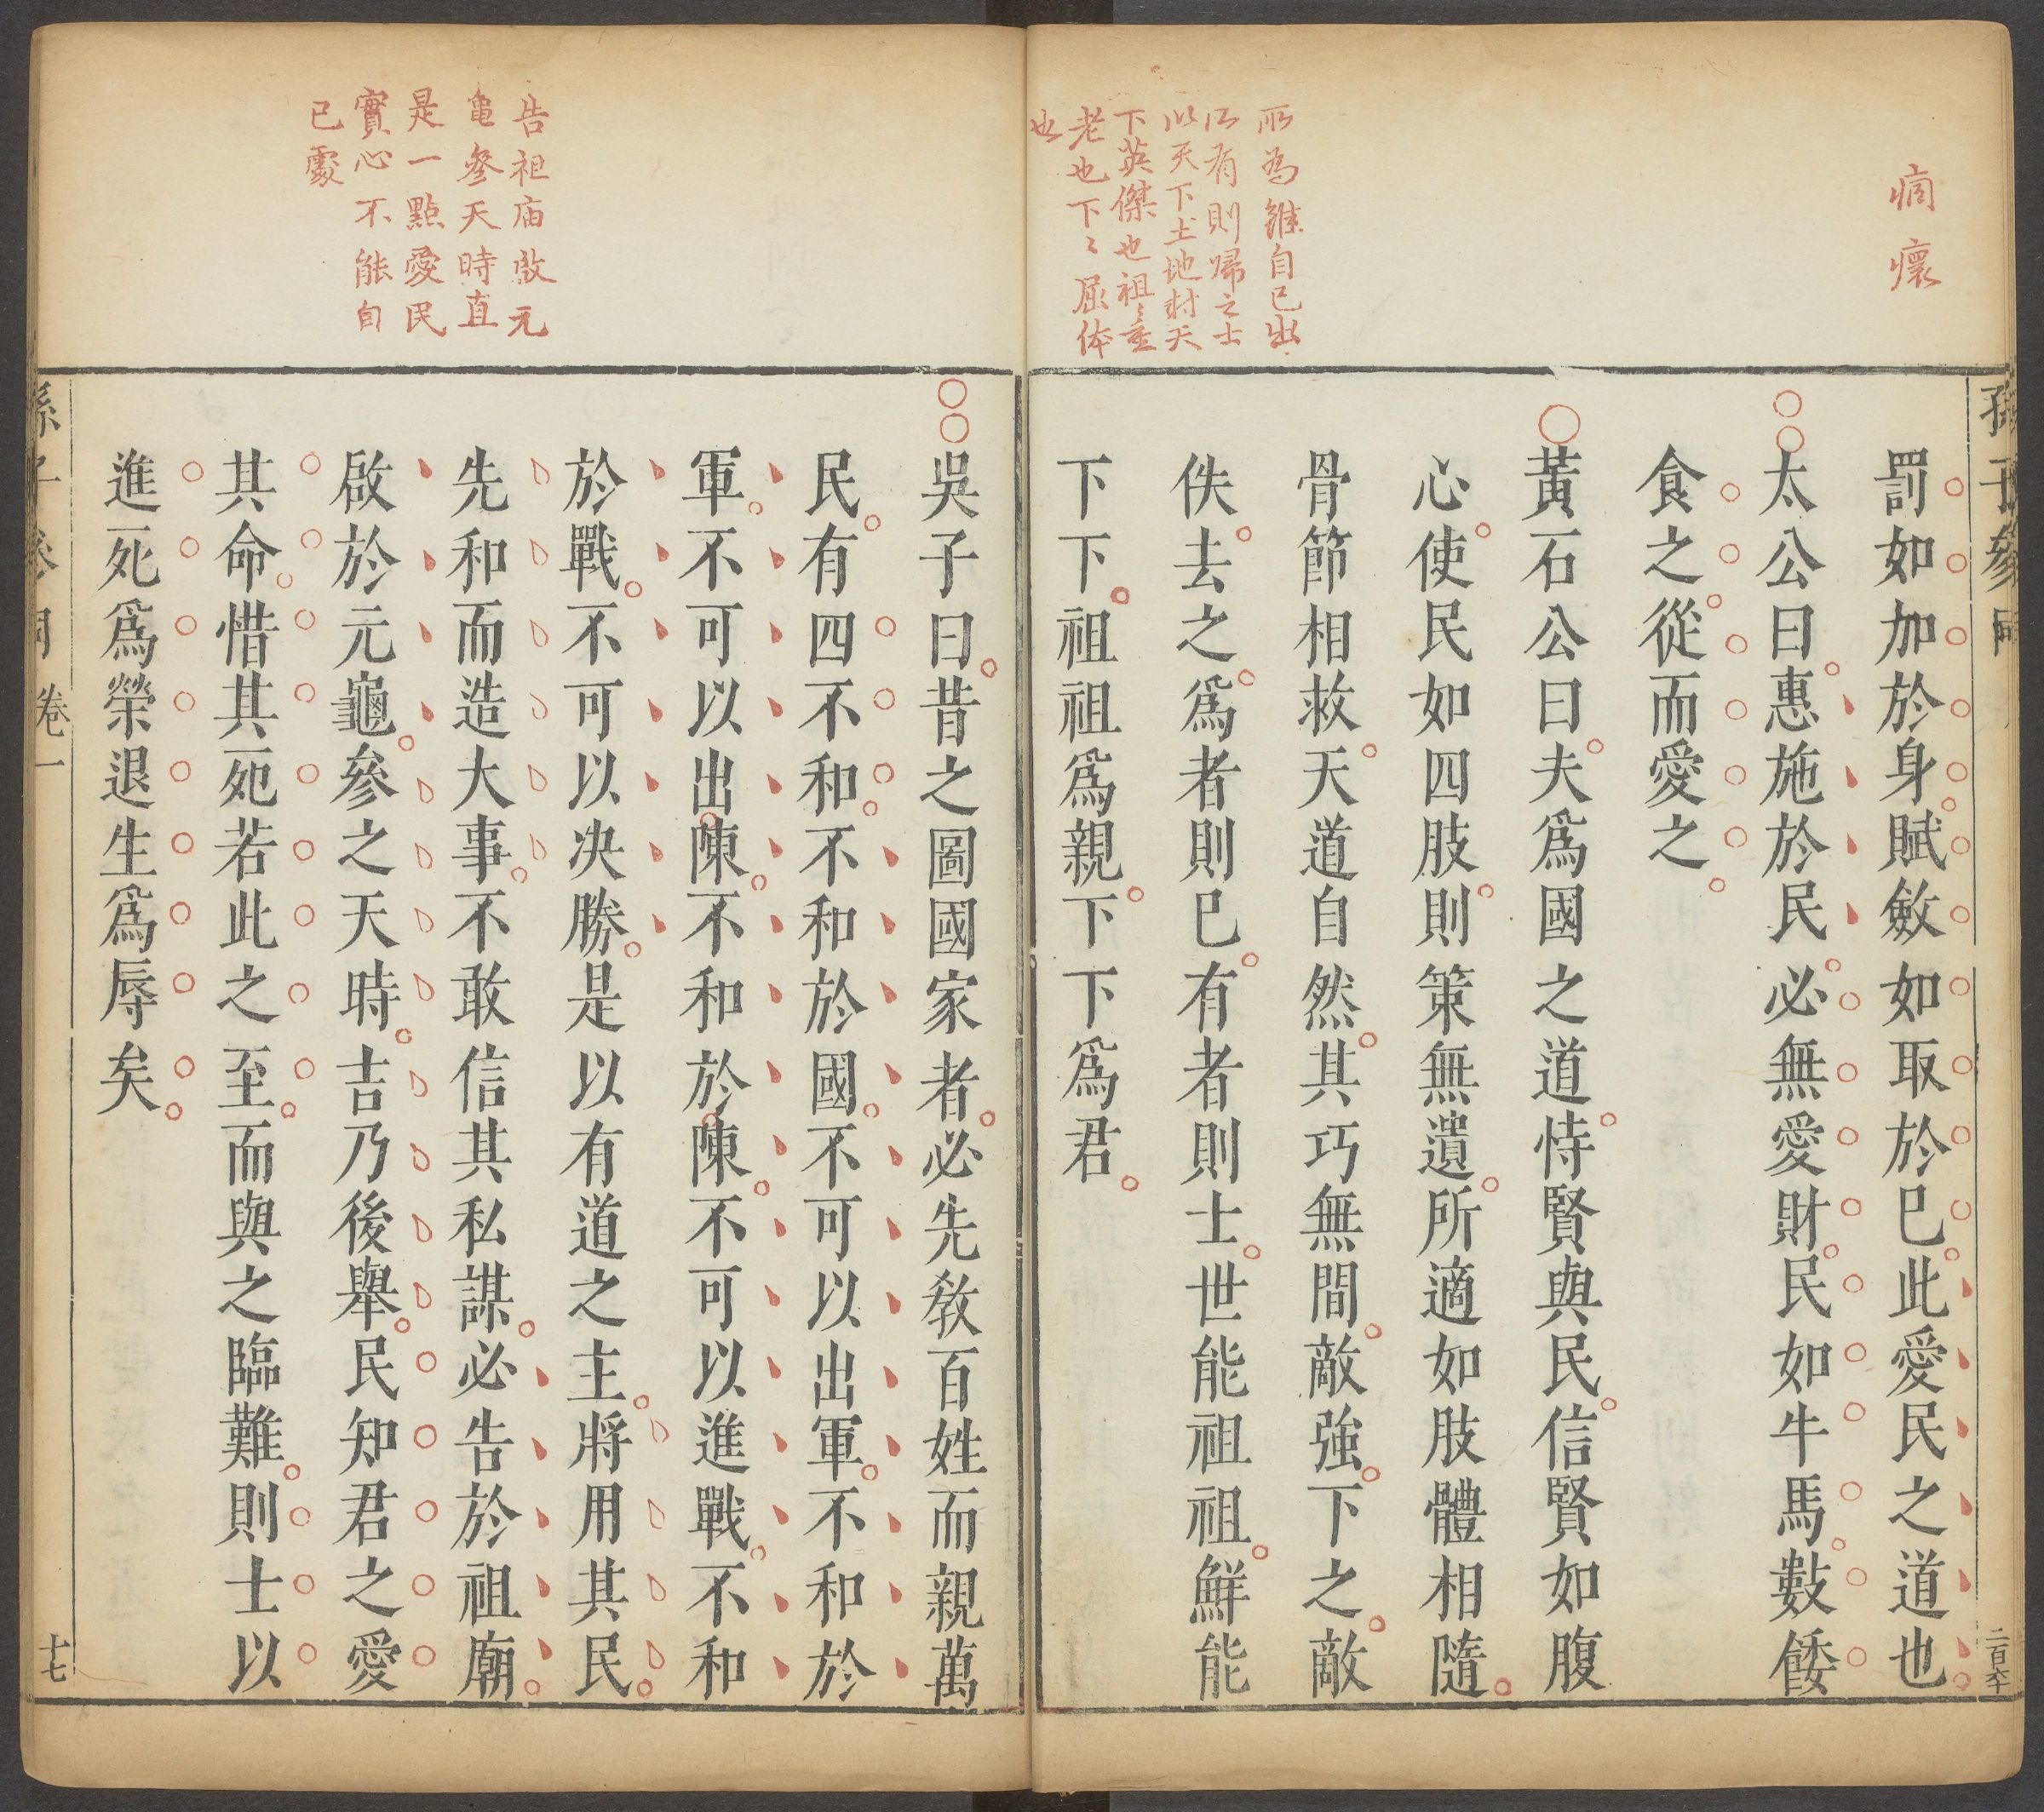 痌瘝
所為雖自己出
而有則歸之士
以天下土地財天
下英傑也祖〻重
老也下〻屈体
也
孫子參同
二百六十
罰如加於身賦斂如取於已此愛民之道也
太公曰惠施於民必無愛財民如牛馬數餧
食之從而愛之
黃石公曰夫爲國之道恃賢與民信賢如腹
心使民如四肢則策無遺所適如肢體相隨
骨節相救天道自然其巧無間敵強下之敵
佚去之爲者則已有者則士世能祖祖鮮能
下下祖祖爲親下下爲君
告祖庙啟元
亀參天時直
是一點愛民
實心不能自
已處
吳子曰昔之圖國家者必先敎百姓而親萬
民有四不和不和於國不可以出軍不和於
軍不可以出陳不和於陳不可以進戰不和
於戰不可以決勝是以有道之主將用其民
先和而造大事不敢信其私謀必告於祖廟
啟於元龜參之天時吉乃後舉民知君之愛
其命惜其死若此之至而與之臨難則士以
進死爲榮退生爲辱矣
孫子參同 卷一
十七